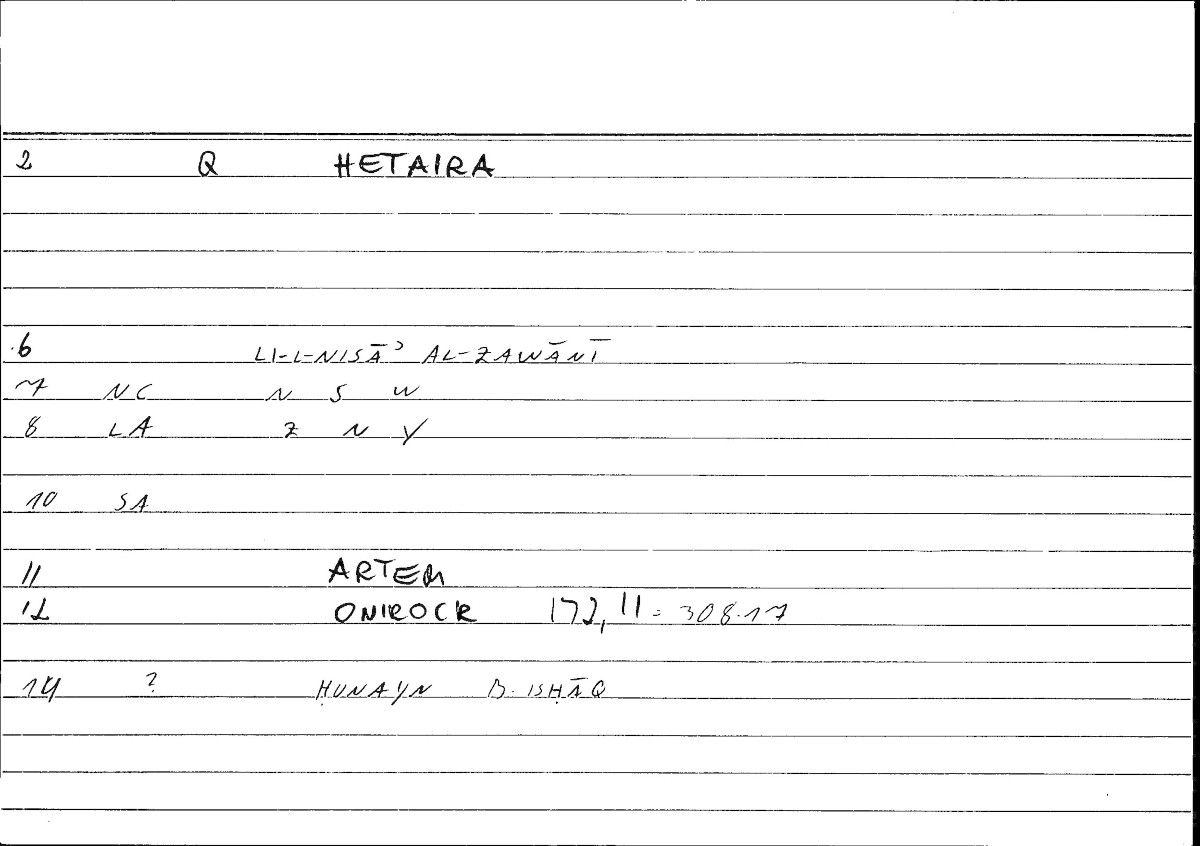 2 Q HETAIRA
6 LI-L-NISĀʾ AL-ZAWĀNĪ
7 NC N S W
8 LA Z N Y
10 SA
11 ARTEM
12 ONIROCR 172,11 = 308.17
14 ? ḤUNAYN B. ISḤĀQ